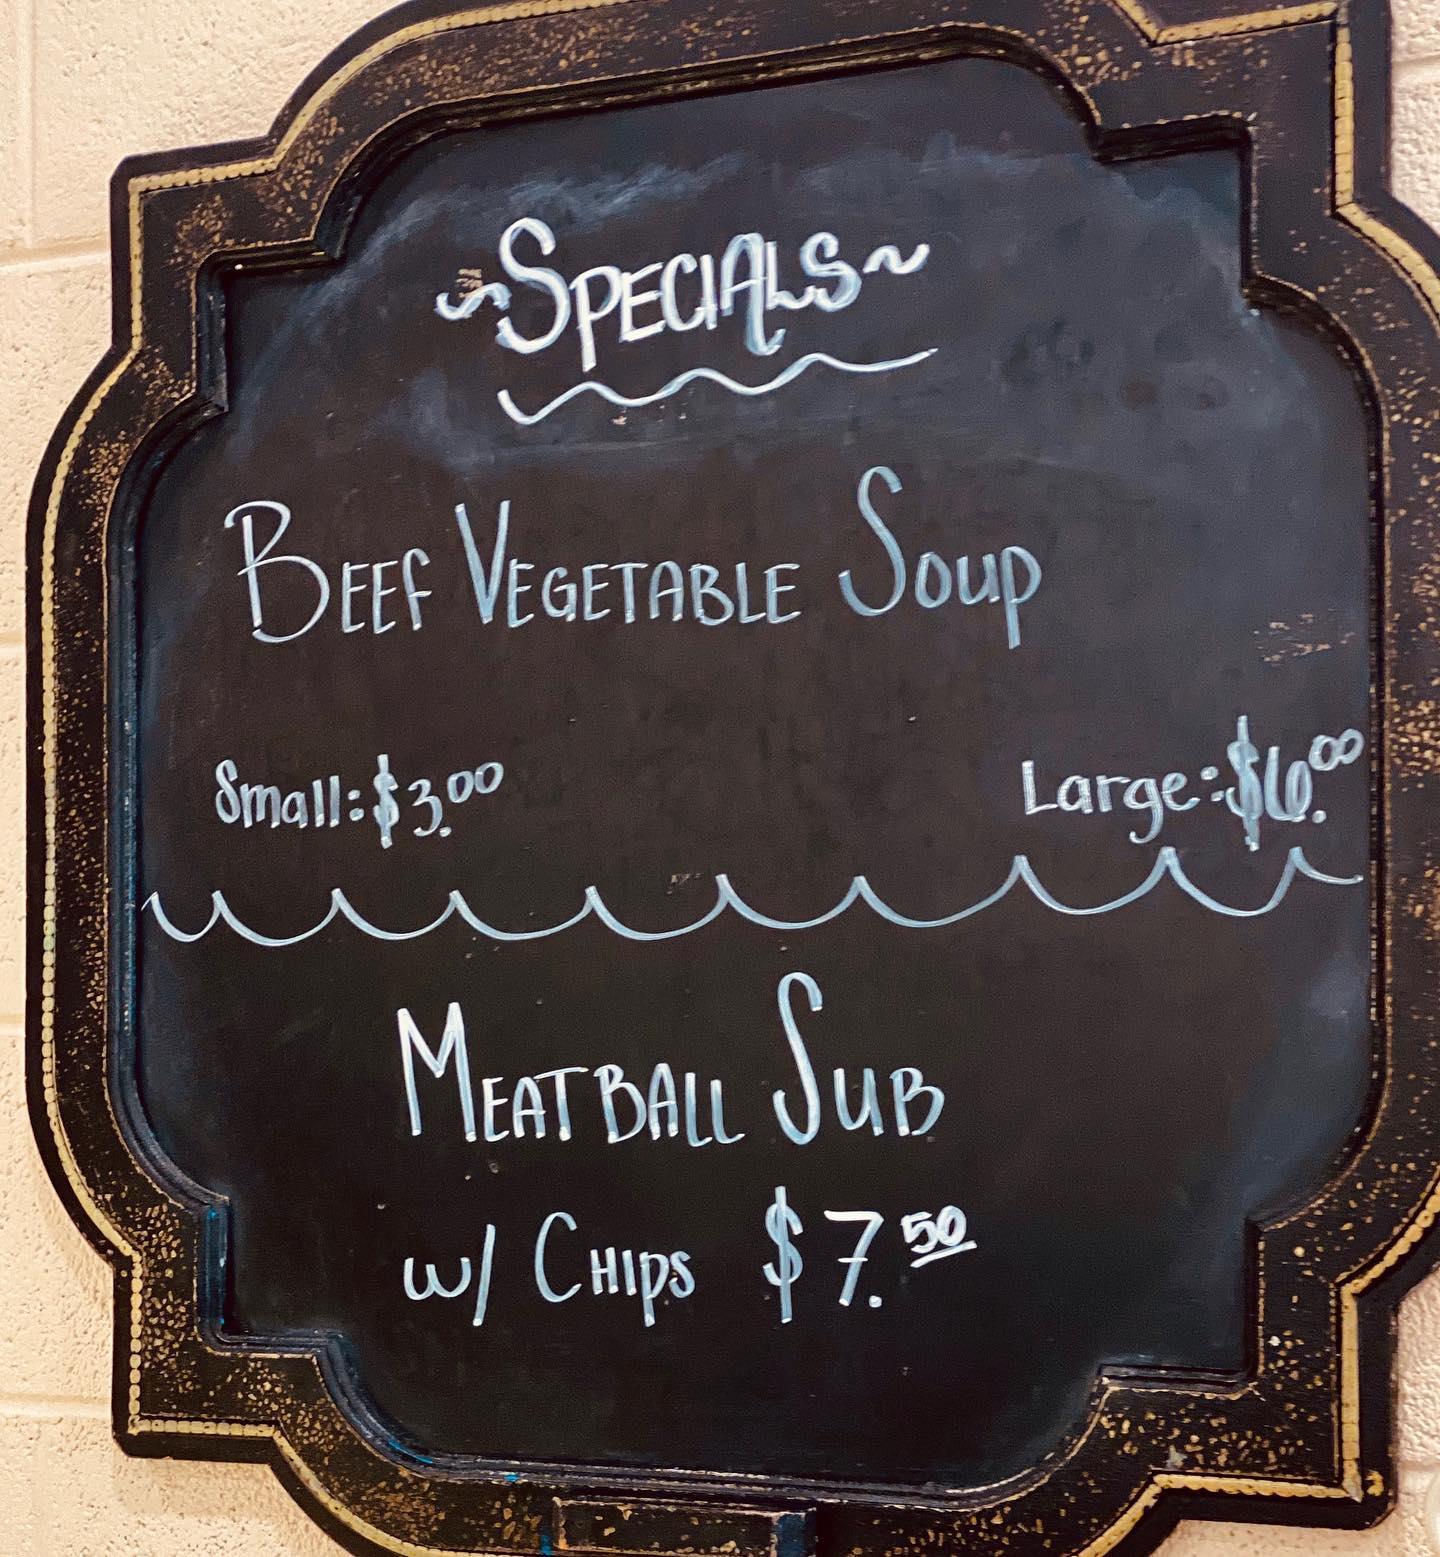 ~Specials~
Beef Vegetable Soup
Small: $3.00 Large: $6.00
Meatball Sub
w/ Chips $7.50